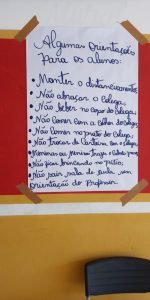 Algumas orientações
para os alunos:
• Manter o distanciamento
• Não abraçar o Colega,
• Não beber no copo do Colega,
• Não Comer com a Colher do Colega,
• Não Comer no prato do Colega,
• Não Trocar de Carteira com o Colega
• Meninas ou Meninos traga o Cabelo preso,
• Não ficar brincando no pátio,
• Não sair sala de aula sem
orientação do Professor.